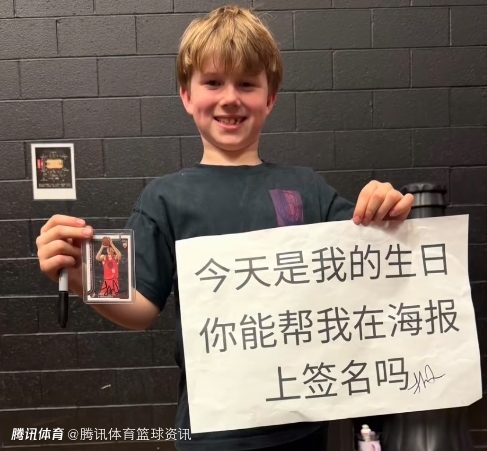 今天是我的生日
你能帮我在海报
上签名吗
腾讯体育 @腾讯体育篮球资讯